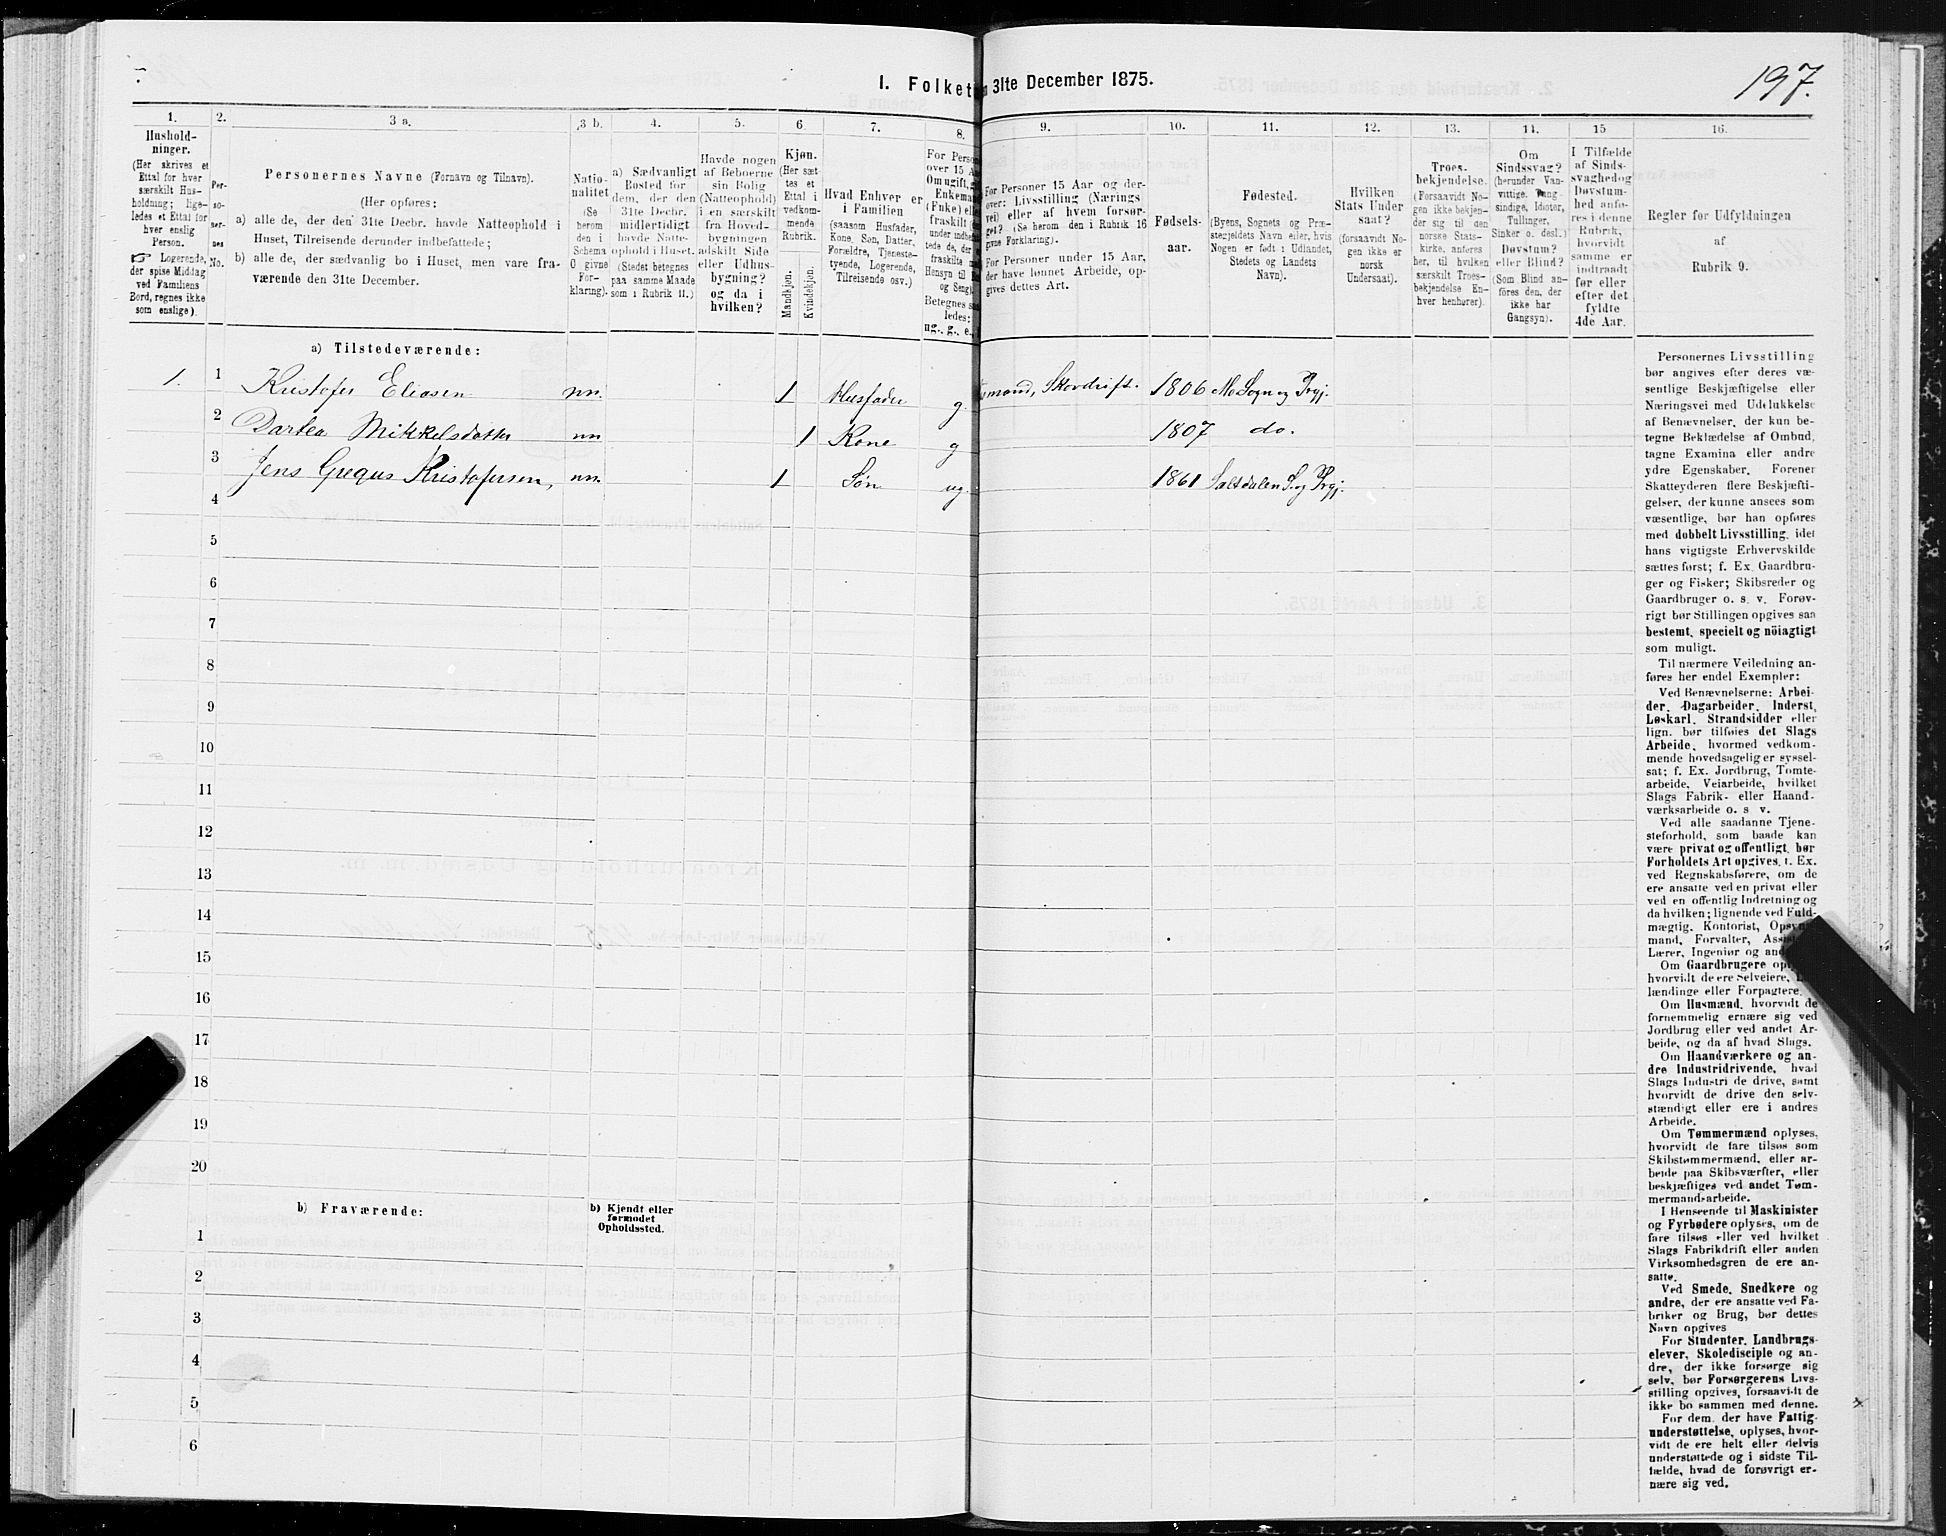 1. Folket
n 31te December 1875.
197.
1.
Hushold-
ninger.
(Her skrives et
Ettal for hver
særskilt Hus-
holdning; lige-
ledes et Ettal for
hver enslig
Person.
☞ Logerende,
der spise Middag
ved Familiens
Bord, regnes ikke
som enslige).
2.
Per-
so-
ner-
nes
No.
3 a.
Personernes Navne (Fornavn og Tilnavn).
(Her opføres:
a) alle de, der den 31te Decbr. havde Natteophold i
Huset, Tilreisende derunder indbefattede;
b) alle de, der sædvanlig bo i Huset, men vare fra-
værende den 31te December.
3 b.
Natio-
nalitet
(Se
herom
den i
Schema
O givne
For-
klaring).
4.
a) Sædvanligt
Bosted for
dem, der den
31te Decbr.
midlertidigt
havde Natte-
ophold i Huset.
(Stedet betegnes
paa samme Maade
som i Rubrik 11.)
5.
Havde nogen
af Beboerne
sin Bolig
(Natteophold)
i en særskilt
fra Hoved-
bygningen
adskilt Side
eller Udhus-
bygning?
og da i
hvilken?
6.
Kjøn.
(Her sæt-
tes et
Ettal i
vedkom-
mende
Rubrik.
Mandkjøn.
Kvindekjøn.
7.
Hvad Enhver er
i Familien
(saasom Husfader,
Kone, Søn, Datter,
Forældre, Tjeneste-
tyende, Logerende,
Tilreisende osv.)
8.
For Perso
over 15 A
Om ugift, g
Enkema
(Fuke) e
fraskilt
under indbe
tede de, de
fraskilte m
Hensyn til B
og Seng).
Betegnes s
ledes:
ug., g., e.,
9.
For Personer 15 Aar og der-
over: Livsstilling (Nærings
vei) eller af hvem forsør-
get? (Se herom den i Rubrik 16
givne Forklaring).
For Personer under 15 Aar,
der have lønnet Arbeide, op-
gives dettes Art.
10.
Fødsels-
aar.
11.
Fødested.
(Byens, Sognets og Præ-
stegjeldets Navn eller, hvis
Nogen er født i Udlandet,
Stedets og Landets
Navn).
12.
Hvilken
Stats Under
saat?
(forsaavidt No-
gen ikke er
norsk
Undersaat).
13.
Troes-
bekjendelse.
(Forsaavidt No-
gen ikke bekjen-
der sig til den
norske Stats-
kirke, anføres
her, til hvilken
særskilt Troes-
bekjendelse En-
hver henhører).
14.
Om
Sindssvag?
(herunder Van-
vittige, Tung-
sindige, Idioter,
Tullinger,
Sinker o. desl.)
Døvstum?
eller Blind?
(Som Blind an-
føres den, der
ikke har
Gangsyn).
15
I Tilfælde
af Sinds-
svaghed og
Døvstum-
hed anfø-
res i denne
Rubrik,
hvorvidt
samme er
indtraadt
før eller
efter det
fyldte
4de Aar.
16.
Regler for Udfyldningen
af
Rubrik 9.
a) Tilstedeværende:
1. 1 Kristofer Eliasen nn. 1 Husfader g. mand, Skovdrift. 1806 M. Sogn og Prgj.
2 Dartea Mikkelsdatter nn 1 Kone g 1807 do.
3 Jens Gregus Kristofersen, nn. 1 Søn ug. 1861 Saltdalen S. og Prgj.
4
5
6
7
8
9
10
11
12
13
14
15
16
17
18
19
20
b) Fraværende:
b) Kjendt eller
formodet
Opholdssted.
1
2
3
4
5
6
Personernes Livsstilling
bør angives efter deres væ-
sentlige Beskjæftigelse eller
Næringsvei med Udelukkelse
af Benævnelser, der kun be-
tegne Beklædelse af Ombud,
tagne Examina eller andre
ydre Egenskaber. Forener
Skatteyderen flere Beskjæfti-
gelser, der kunne ansees som
væsentlige, bør han opføres
med dobbelt Livsstilling, idet
hans vigtigste Erhvervskilde
sættes først; f. Ex. Gaardbru-
ger og Fisker; Skibsreder og
Gaardbruger o. s. v. Forøv-
rigt bør Stillingen opgives saa
bestemt, specielt og nöiagtigt
som muligt.
Til nærmere Veiledning an-
føres her endel Exempler:
Ved Benævnelserne: Arbei-
der, Dagarbeider, Inderst,
Løskarl, Strandsidder eller
lign. bør tilføies det Slags
Arbeide, hvormed vedkom-
mende hovedsagelig er syssel-
sat; f. Ex. Jordbrug, Tomte-
arbeide, Veiarbeide, hvilket
Slags Fabrik- eller Haand-
værksarbeide o. s. v.
Ved alle saadanne Tjene-
steforhold, som baade kan
være privat og offentligt, bør
Forholdets Art opgives, f. Ex.
ved Regnskabsførere, om de
ere ansatte ved en privat eller
ved en offentlig Indretning og
da hvilken; lignende ved Fuld-
mægtig, Kontorist, Opsyns-
mand, Forvalter, Assis
Lærer, Ingeniør og and
Om Gaardbrugere op
hvorvidt de ere Selveiere,
lændinge eller Forpagtere.
Om Husmænd, hvorvidt de
fornemmelig ernære sig ved
Jordbrug eller ved andet Ar-
beide, og da af hvad Slags.
Om Haandværkere og an-
dre Industridrivende, hvad
Slags Industri de drive, samt
hvorvidt de drive den selv-
stændigt eller ere i andres
Arbeide.
Om Tømmermænd oplyses,
hvorvidt de fare tilsøs som
Skibstømmermænd, eller ar-
beide paa Skibsværfter, eller
beskjæftiges ved andet Tøm-
mermandsarbeide.
I Henseende til Maskinister
og Fyrbødere oplyses, om de
fare tilsøs eller ved hvilket
Slags Fabrikdrift eller anden
Virksomhedsgren de ere an-
satte.
Ved Smede, Snedkere og
andre, der ere ansatte ved Fa-
briker og Brug, bør dettes
Navn opgives
For Studenter, Landbrugs-
elever, Skoledisciple og an-
dre, der ikke forsørge sig
selv, bør Forsørgerens Livs-
stilling opgives, forsaavidt de
ikke bo sammen med denne.
For dem, der have Fattig-
understøttelse, oplyses, hvor-
vidt de ere helt eller delvis
understøttede og i sidste Til-
fælde, hvad de forøvrigt er-
nære sig ved.